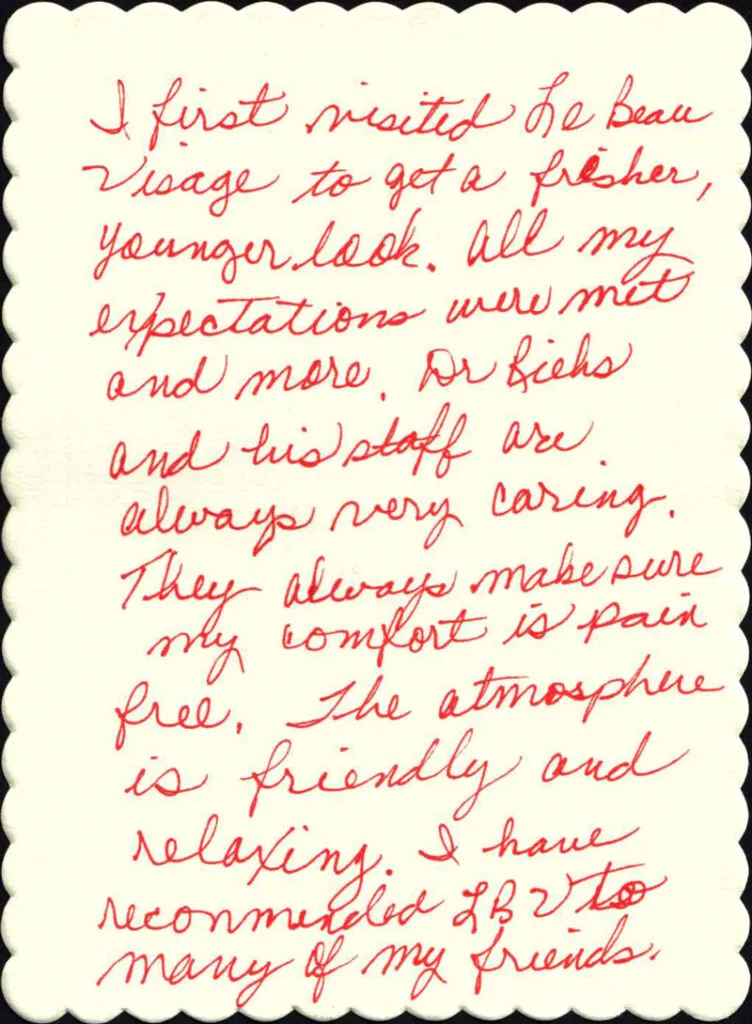 I first visited Le Beau
Visage to get a fresher,
younger look. All my
expectations were met
and more. Dr Biehs
and his staff are
always very caring.
They always make sure
my comfort is pain
free. The atmosphere
is friendly and
relaxing. I have
recommended LBV to
many of my friends.